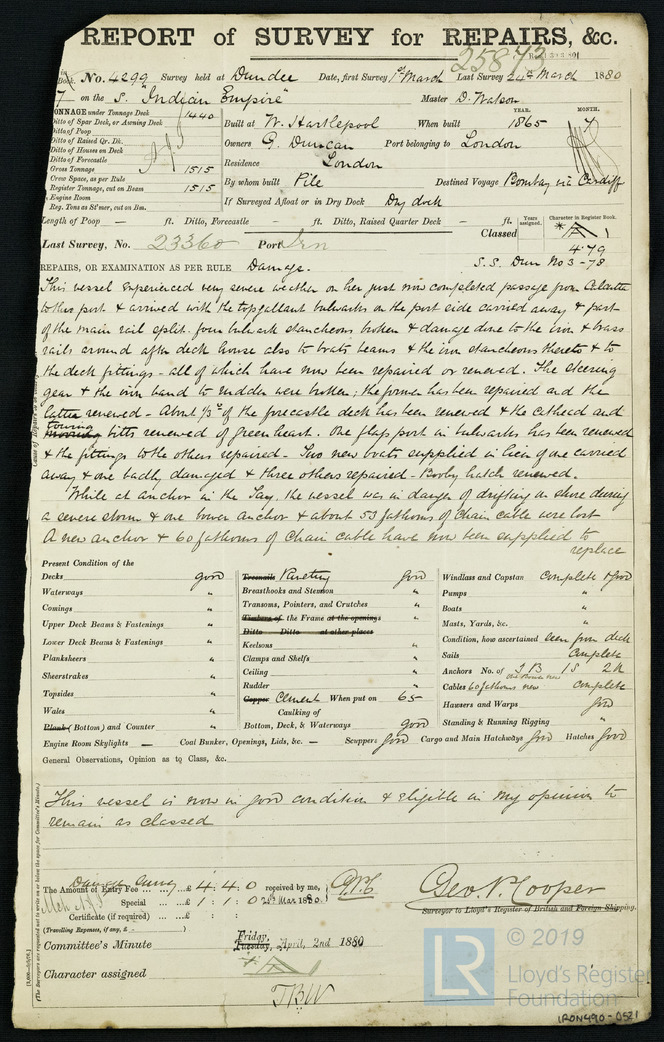 REPORT of SURVEY for REPAIRS, &c.
25873
No. 4299 Survey held at Dundee Date, first Survey 1st March Last Survey 24th March 1880
on the S. "Indian Empire" Master D. Watson
TONNAGE under Tonnage Deck 1440
Ditto of Spar Deck, or Awning Deck
Ditto of Poop
Ditto of Raised Qr. Dk.
Ditto of Houses on Deck
Ditto of Forecastle
Gross Tonnage 1515
Crew Space, as per Rule
Register Tonnage, cut on Beam 1515
Engine Room
Reg. Tons as St'mer, cut on Bm.
TONNAGE. MONTH.
Built at W. Hartlepool When built 1865 7
Owners G. Duncan Port belonging to London
Residence London
By whom built Pile Destined Voyage Bombay via Cardiff
If Surveyed Afloat or in Dry Dock Dry dock
Length of Poop — ft. Ditto, Forecastle - ft. Ditto, Raised Quarter Deck — ft.
Years assigned. Character in Register Book.
Classed A 1
4.79
Last Survey, No. 23360 Port Lrn
S.S. Dun No 3 - 78
REPAIRS, OR EXAMINATION AS PER RULE Damage.
This vessel experienced very severe weather on her just now completed passage from Calcutta
to this port & arrived with the topgallant bulwarks on the port side carried away & part
of the main rail split. four bulwark stancheons broken & damage done to the iron & brass
rails around after deck house also to boats beams & the iron stancheons thereto & to
the deck fittings - all of which have now been repaired or renewed. The steering
gear & the iron band to rudder were broken; the former has been repaired and the
latter renewed - About 1/3rd of the forecastle deck has been renewed & the cathead and
towing
mooring bitts renewed of greenheart. One flap port in bulwarks has been renewed
& the fittings to the others repaired - Two new boats supplied in lieu of one carried
away & one badly damaged & three others repaired - Booby hatch renewed.
While at anchor in the Tay, the vessel was in danger of drifting on shore during
a severe storm & one bower anchor & about 53 fathoms of chain cable were lost
A new anchor & 60 fathoms of chain cable have now been supplied to
replace
Present Condition of the
Decks good
Waterways "
Comings "
Upper Deck Beams & Fastenings "
Lower Deck Beams & Fastenings "
Planksheers "
Sheerstrakes "
Topsides "
Wales "
Plank (Bottom) and Counter "
Treenails Riveting good
Breasthooks and Stemson "
Transoms, Pointers, and Crutches "
Timbers of the Frame at the openings "
Ditto Ditto at other places
Keelsons "
Clamps and Shelfs "
Ceiling "
Rudder "
Copper Cement When put on 65
Caulking of
Bottom, Deck, & Waterways good
Windlass and Capstan Complete & good
Pumps "
Boats "
Masts, Yards, &c. "
Condition, how ascertained seen from deck
Sails Complete
Anchors No. of 3 B 1 S 2 K
one Bower new
Cables 60 fathoms new complete
Hawsers and Warps good
Standing & Running Rigging "
Engine Room Skylights — Coal Bunker, Openings, Lids, &c. — Scuppers good Cargo and Main Hatchways good Hatches good
General Observations, Opinion as to Class, &c.
This vessel is now in good condition & eligible in my opinion to
remain as classed
Damage Survey
The Amount of Entry Fee £ 4 : 4 : 0 received by me,
Special £ 1 : 1 : 0 Mar 1880.
Certificate (if required) £ : :
(Travelling Expenses, if any, £ )
Geo. P. Cooper
Surveyor to Lloyd's Register of British and Foreign Shipping.
Friday,
Committee's Minute Tuesday, April, 2nd 1880
Character assigned A
TBW
© 2019
LR
Lloyd's Register
Foundation
IRON490-0521